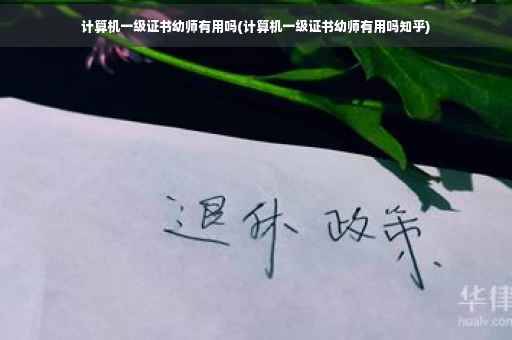 计算机一级证书幼师有用吗(计算机一级证书幼师有用吗知乎)
退休 政策
华律
hualv.com